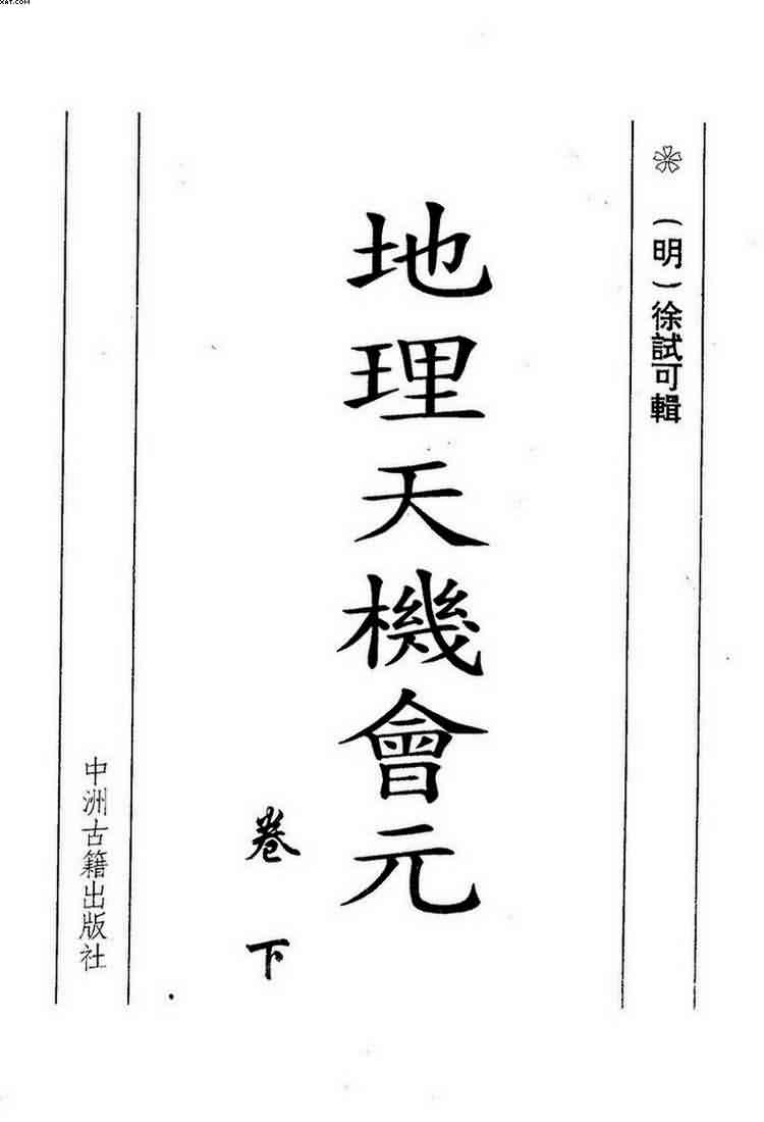 （明）徐試可輯
地理天機會元
卷下
中洲古籍出版社